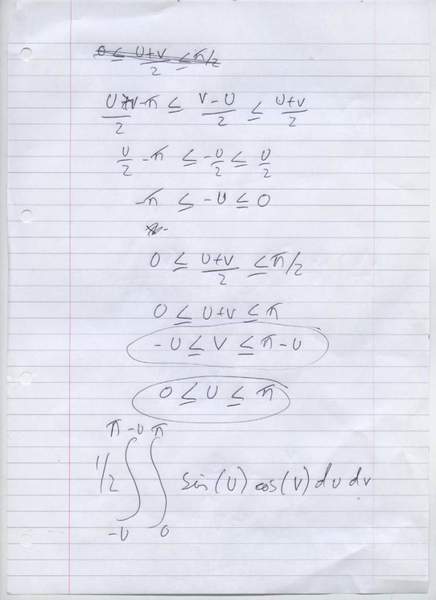 0 ≤ (U+V)/2 ≤ π/2
(U+V)/2 - π ≤ (V-U)/2 ≤ (U+V)/2
U/2 - π ≤ -U/2 ≤ U/2
-π ≤ -U ≤ 0
0 ≤ (U+V)/2 ≤ π/2
0 ≤ U+V ≤ π
-U ≤ V ≤ π-U
0 ≤ U ≤ π
1/2 ∫_{-U}^{π-U} ∫_0^π sin(U) cos(V) du dv